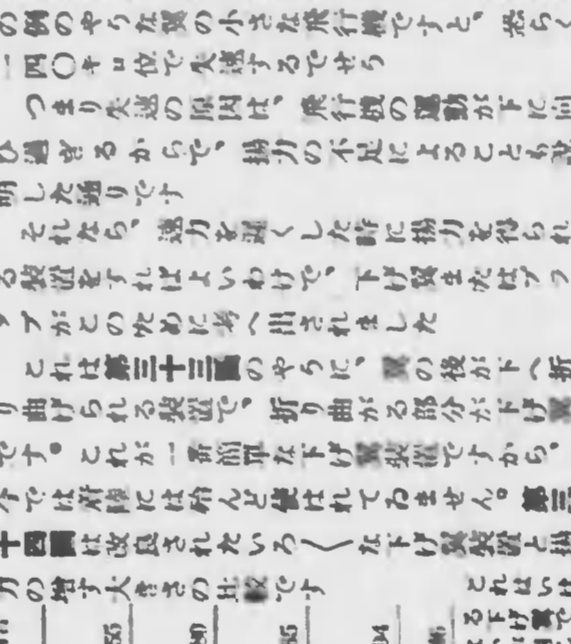 の例のやうな翼の小さな飛行機ですと、恐らく
一四〇キロ位で失速するでせう
つまり失速の原因は、飛行機の運動が下に向
ひ過ぎるからで、揚力の不足によることも説
明した通りです
それなら、速力を遅くした時に揚力を得られ
る装置をすればよいわけで、下げ翼またはフラ
ップがこのために考へ出されました
これは第三十三図のやうに、翼の後が下へ折
り曲げられる装置で、折り曲がる部分が下げ翼
です。これが一番簡単な下げ翼装置ですから、
今では殆んど使はれてゐません。第三
十四図は改良されたいろ〱な下げ翼装置と揚
力の増す大きさの比較です
これはいは
る下げ翼で